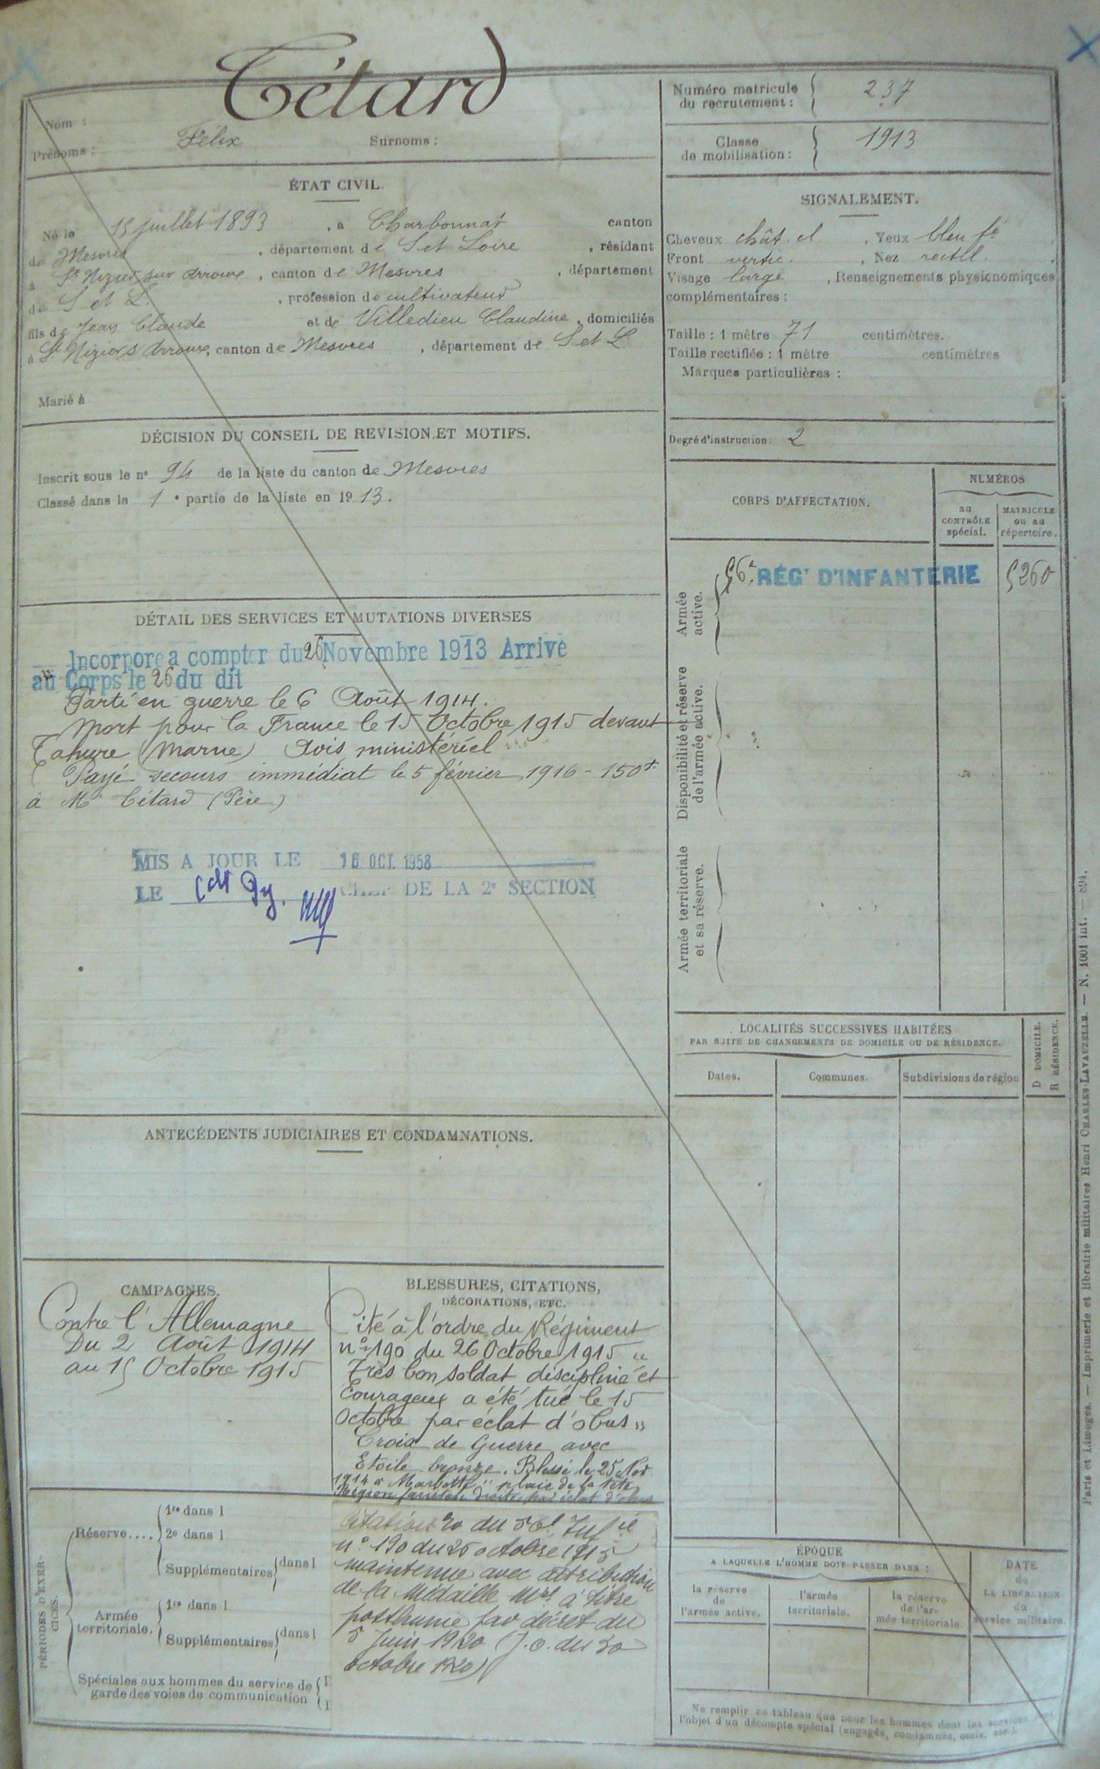 Tétard
Nom :
Prénoms : Félix Surnoms :
ÉTAT CIVIL.
Né le 15 juillet 1893, à Charbonnat canton
de Mesvres, département de S. et Loire, résidant
à St Nizier sur Arroux, canton de Mesvres, département
de S et L, profession de cultivateur
fils de Jean Claude et de Villedieu Claudine, domiciliés
à St Nizier s Arroux, canton de Mesvres, département de S et L
Marié à
DÉCISION DU CONSEIL DE REVISION ET MOTIFS.
Inscrit sous le n° 94 de la liste du canton de Mesvres
Classé dans la 1e partie de la liste en 1913.
DÉTAIL DES SERVICES ET MUTATIONS DIVERSES
Incorporé à compter du 26 Novembre 1913 Arrivé
au Corps le 26 du dit
Parti en guerre le 6 Août 1914.
Mort pour la France le 15 Octobre 1915 devant
Tahure (Marne) Avis ministériel
Payé secours immédiat le 5 février 1916 - 150f
à Mr Tétard (Père)
MIS A JOUR LE 16 OCT. 1958
LE CHEF DE LA 2e SECTION
ANTECÉDENTS JUDICIAIRES ET CONDAMNATIONS.
CAMPAGNES.
Contre l'Allemagne
Du 2 Août 1914
au 15 Octobre 1915
BLESSURES, CITATIONS,
DÉCORATIONS, ETC.
Cité à l'ordre du Régiment
n° 190 du 26 Octobre 1915 "
Très bon soldat discipliné et
Courageux a été tué le 15
Octobre par éclat d'obus "
Croix de Guerre avec
Etoile bronze. Blessé le 25 Nov
1914 à plaie de la tête
Région droite par éclat d'obus
Citation du 56e
n° 190 du 26 octobre 1915
maintenue avec attribution
de la Médaille Mre à titre
posthume par décret du
5 Juin 1920 (J.O. du 30
octobre 1920)
PÉRIODES D'EXERCICES.
Réserve....
1re dans l
2e dans l
Supplémentaires dans l
Armée territoriale.
1re dans l
Supplémentaires dans l
Spéciales aux hommes du service de
garde des voies de communication
Numéro matricule
du recrutement : 237
Classe
de mobilisation : 1913
SIGNALEMENT.
Cheveux chât. cl, Yeux bleu fé
Front vertic., Nez rectil.
Visage large, Renseignements physionomiques
complémentaires :
Taille : 1 mètre 71 centimètres.
Taille rectifiée : 1 mètre centimètres
Marques particulières :
Degré d'instruction : 2
CORPS D'AFFECTATION.
NUMÉROS
au
CONTRÔLE
spécial.
MATRICULE
ou au
répertoire.
Armée
active.
56e RÉGt D'INFANTERIE 5260
Disponibilité et réserve
de l'armée active.
Armée territoriale
et sa réserve.
LOCALITÉS SUCCESSIVES HABITÉES
PAR SUITE DE CHANGEMENTS DE DOMICILE OU DE RÉSIDENCE.
Dates. Communes. Subdivisions de région
D DOMICILE.
R RÉSIDENCE.
ÉPOQUE
A LAQUELLE L'HOMME DOIT PASSER DANS :
la réserve
de
l'armée active.
l'armée
territoriale.
la réserve
de l'ar-
mée territoriale.
DATE
de
LA LIBÉRATION
du
service militaire.
Ne remplir ce tableau que pour les hommes dont les services font
l'objet d'un décompte spécial (engagés, condamnés, omis, etc.).
Paris et Limoges. — Imprimerie et librairie militaires Henri CHARLES-LAVAUZELLE. — N. 1001 int. — 894.